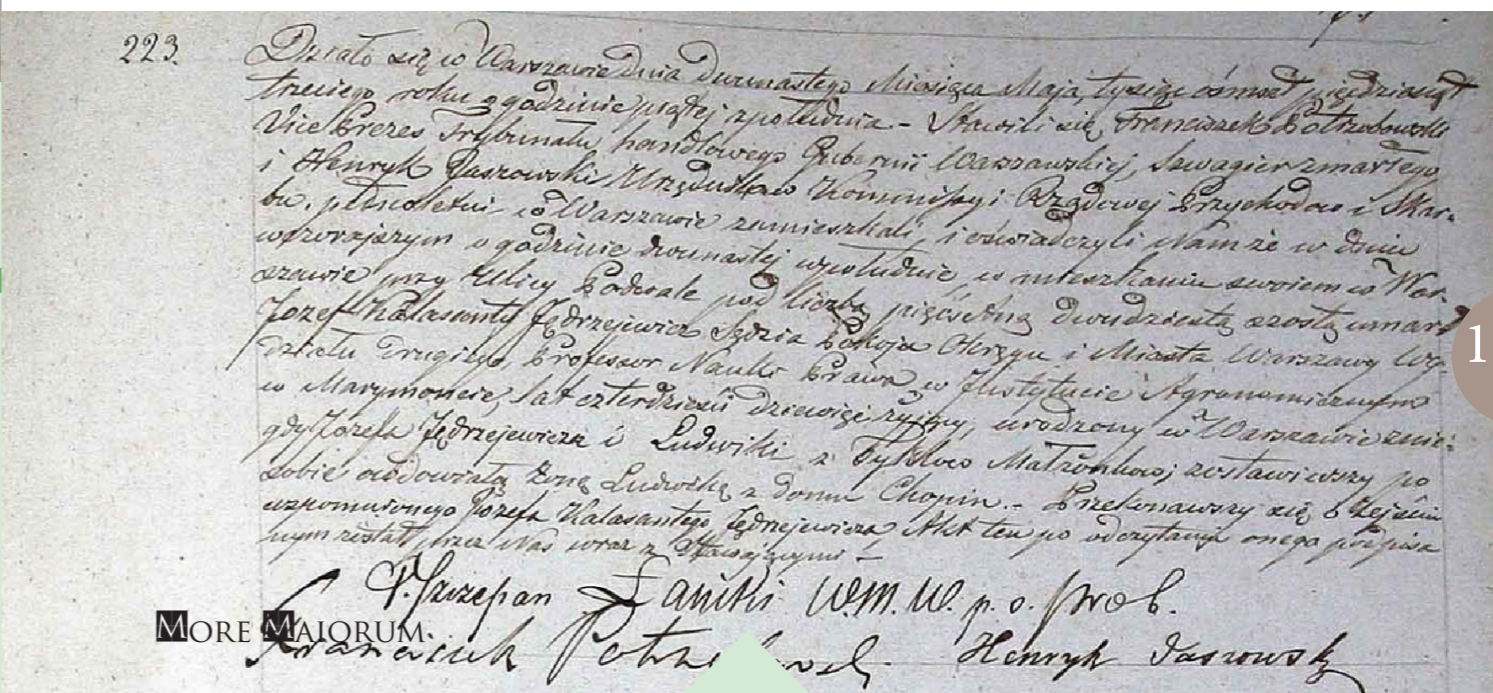 223.
Działo się w Warszawie dnia dwunastego Miesiąca Maja, tysiąc ośmset pięćdziesiąt
trzeciego roku o godzinie piątej z południa. – Stawili się, Franciszek Potrzobowski
Vice Prezes Trybunału handlowego Gubernii Warszawskiej, Szwagier zmarłego
i Henryk Jaszowski Urzędnik w Kommissyi Rządowej Przychodów i Skar-
bu, pełnoletni w Warszawie zamieszkali, i oświadczyli Nam że w dniu
wczorajszym o godzinie dwunastej w południe, w mieszkaniu swoiem w War-
szawie przy Ulicy Podwale pod liczbą pięćsetną dwudziestą szóstą umarł
Jozef Kalasanty Jędrzejewicz Sędzia Pokoju Okręgu i Miasta Warszawy Wy-
działu Drugiego, Professor Nauki Prawa w Instytucie Agronomicznym
w Marymoncie, lat czterdzieści dziewięć żyjący, urodzony w Warszawie z nie-
gdy Józefa Jędrzejewicza i Ludwiki z Małżonków; zostawiwszy po
sobie owdowiałą żonę Ludwikę z domu Chopin. – Przekonawszy się o Zejściu
wspomnionego Józefa Kalasantego Jędrzejewicza Akt ten po odczytaniu onego podpisa
nym został przez Nas wraz z Stawającymi –
Szczepan W.M.W. p. o. Prob.
MORE MAIORUM
Franciszek Henryk Jaszowski
1